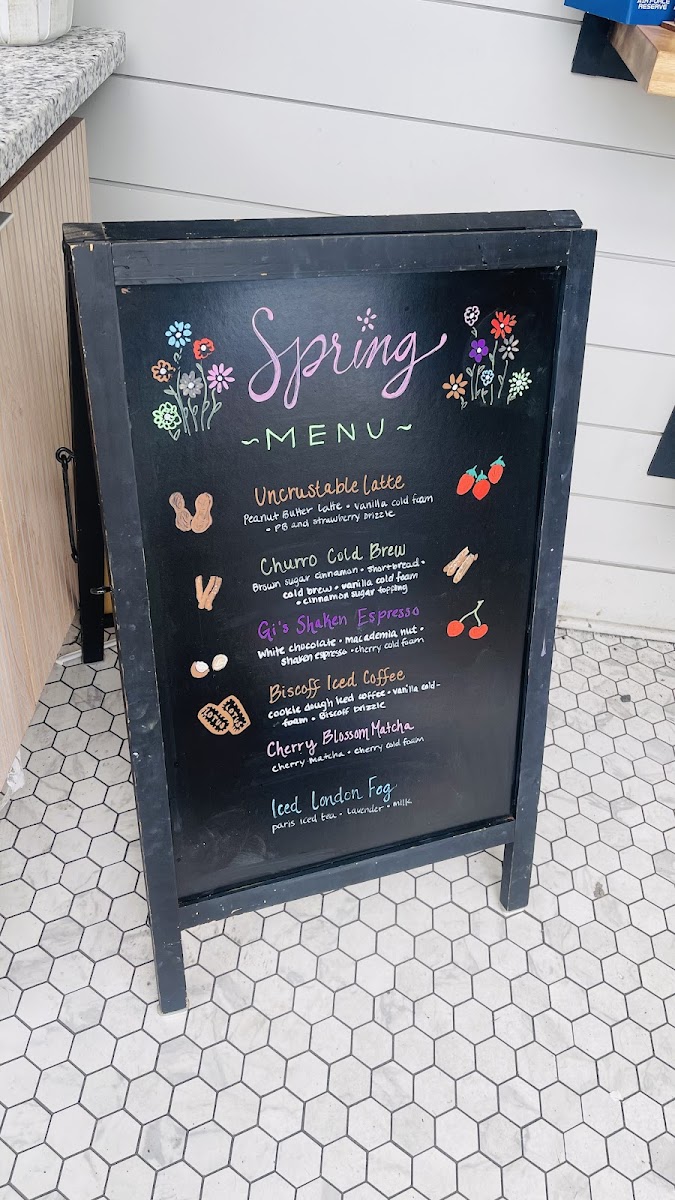 AIR FORCE
RESERVE
Spring
~MENU~
Uncrustable Latte
Peanut Butter Latte • vanilla cold foam
• PB and strawberry Drizzle
Churro Cold Brew
Brown sugar cinnamon • shortbread •
cold brew • vanilla cold foam
• cinnamon sugar topping
Gi's Shaken Espresso
white chocolate • macademia nut •
shaken espresso • cherry cold foam
Biscoff Iced Coffee
cookie dough iced coffee • vanilla cold-
foam • Biscoff Drizzle
Cherry Blossom Matcha
cherry matcha • cherry cold foam
Iced London Fog
paris iced tea • lavender • milk